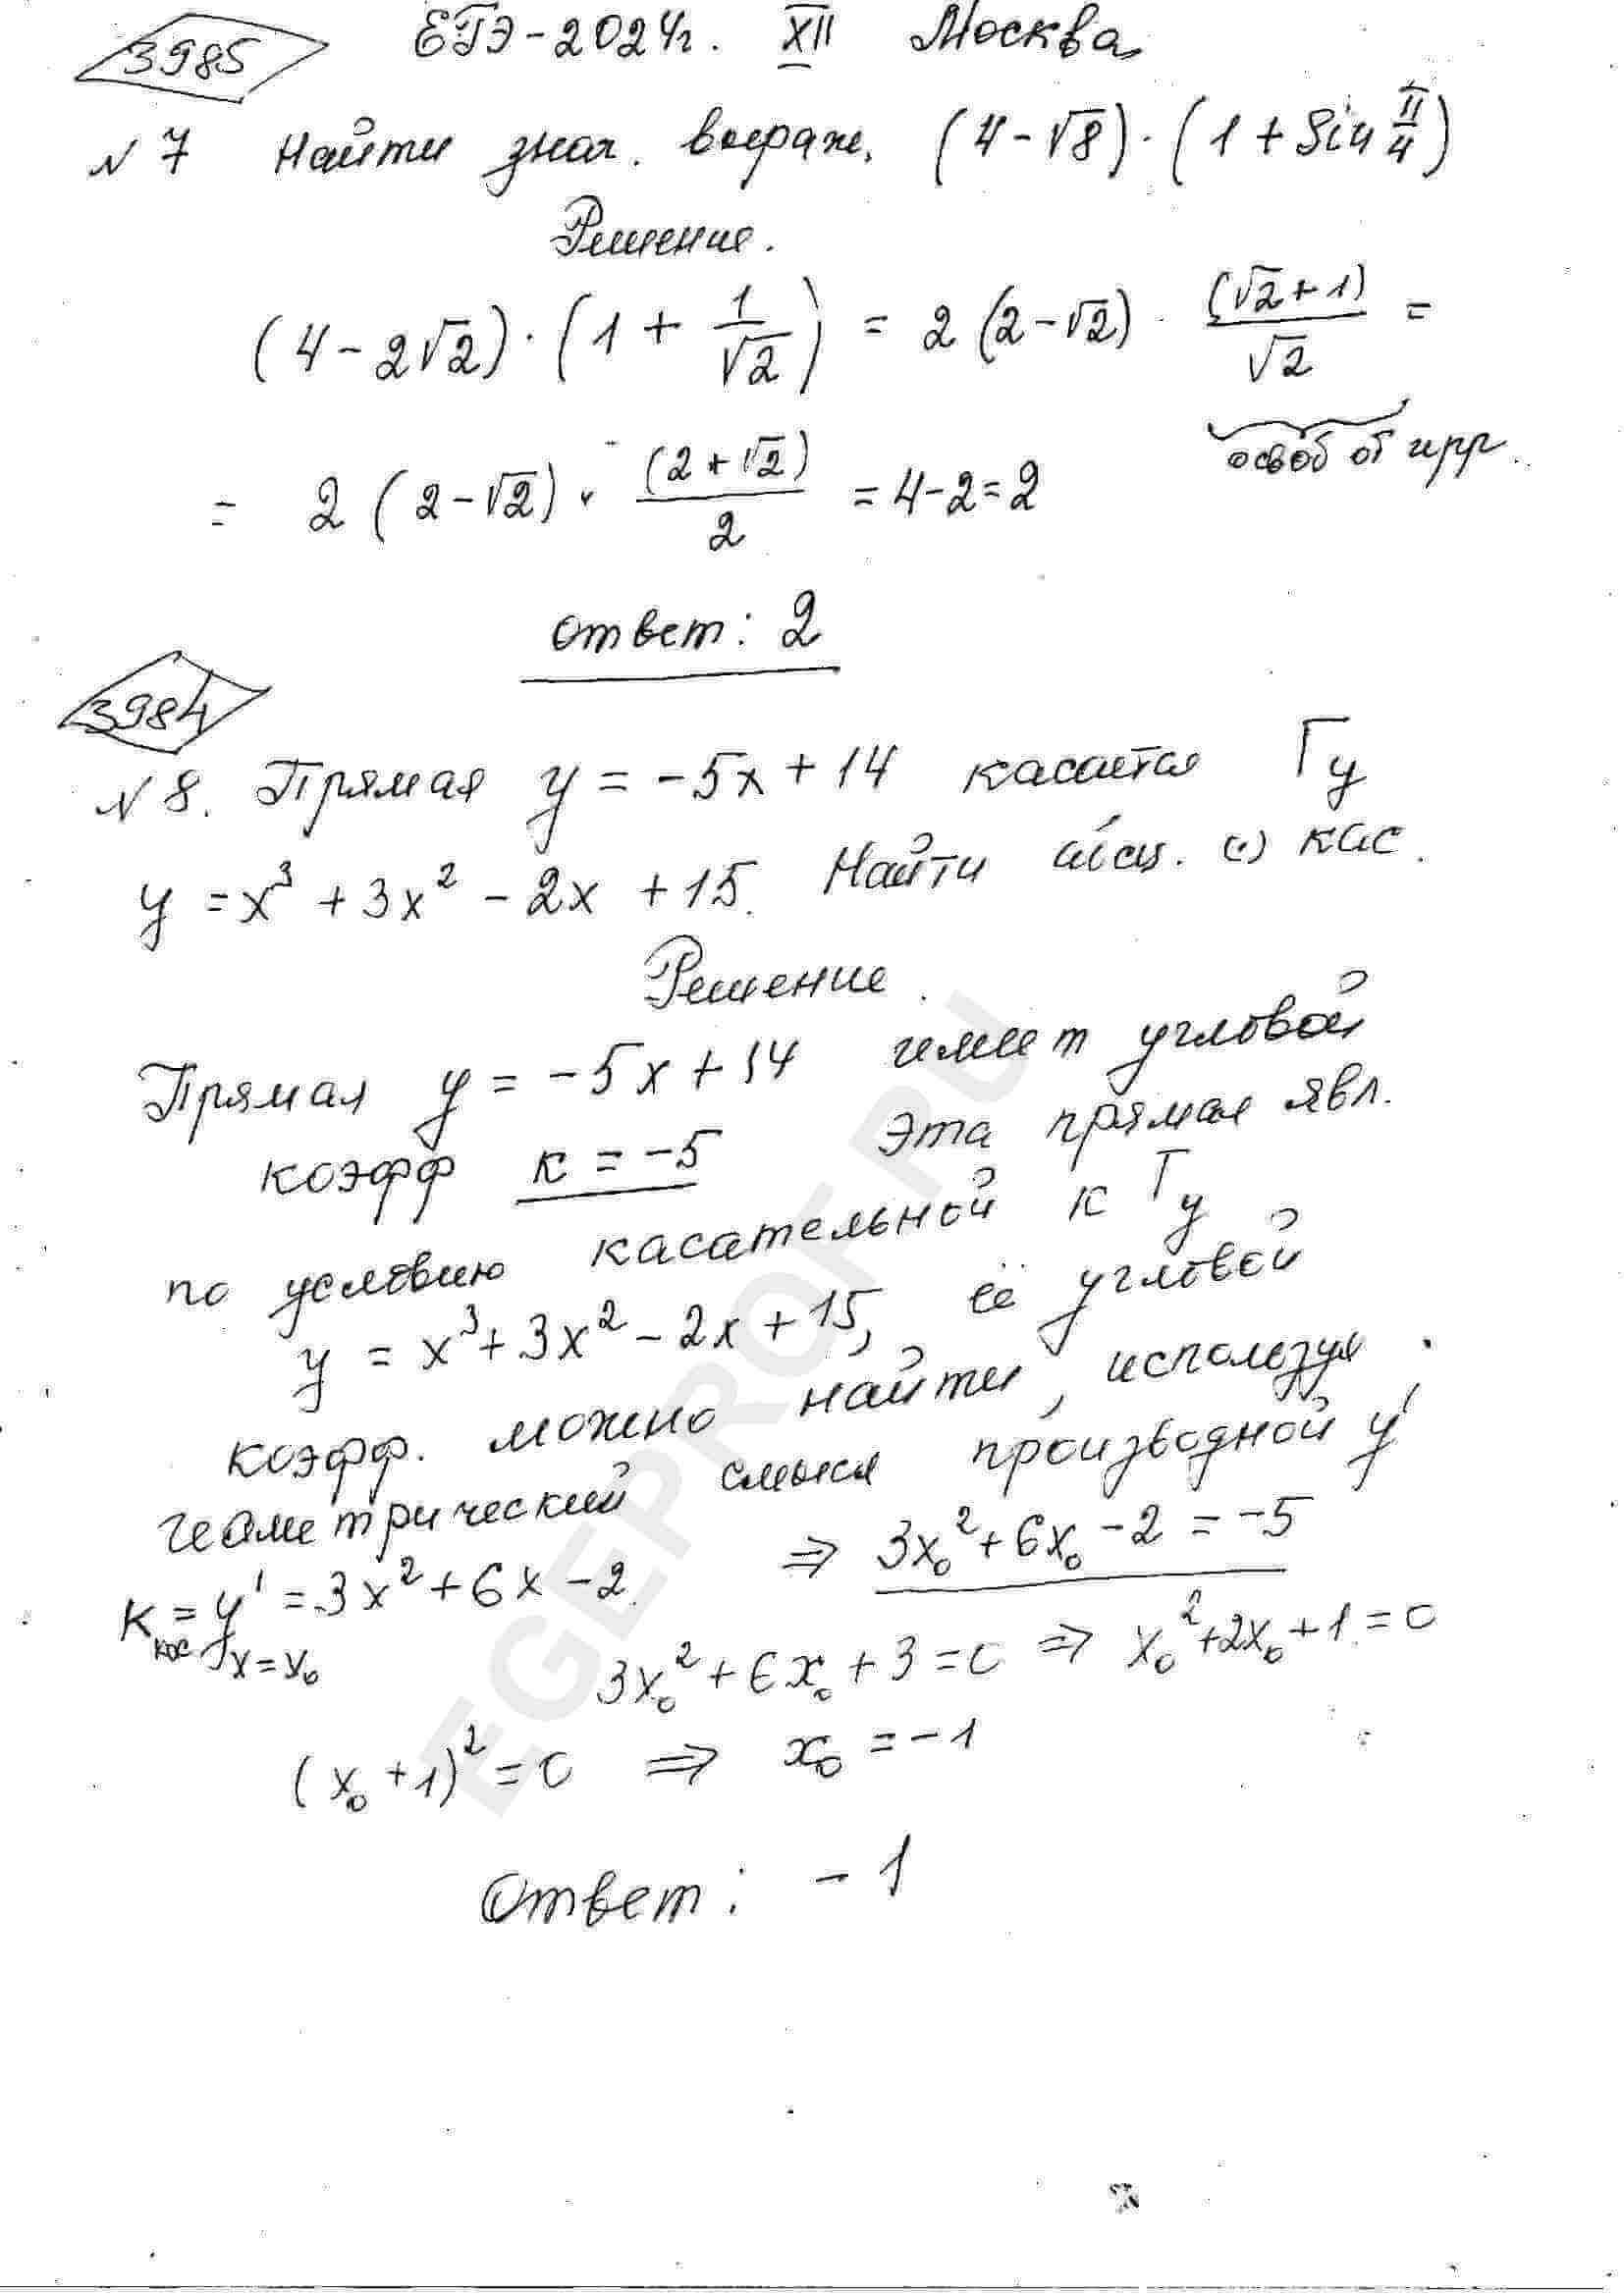 3985 ЕГЭ-2024г. XII Москва
N 7 Найти знач. выраж. (4-√8)·(1+Sin π/4)
Решение.
(4-2√2)·(1+1/√2) = 2(2-√2)·(√2+1)/√2 =
освоб от ирр.
= 2(2-√2)·(2+√2)/2 = 4-2=2
ответ: 2
3984
N 8. Прямая y = -5x+14 касается Гy
y = x³+3x²-2x+15. Найти абсц. (·) кас.
Решение.
Прямая y = -5x+14 имеет угловой
коэфф к = -5 Эта прямая явл.
по условию касательной к Гy
y = x³+3x²-2x+15, её угловой
коэфф. можно найти, используя
геометрический смысл производной y'
Kкас = y'x=x₀ = 3x²+6x-2. ⇒ 3x₀²+6x₀-2 = -5
3x₀²+6x₀+3=0 ⇒ x₀²+2x₀+1=0
(x₀+1)²=0 ⇒ x₀=-1
Ответ: -1
EGEPROF.RU